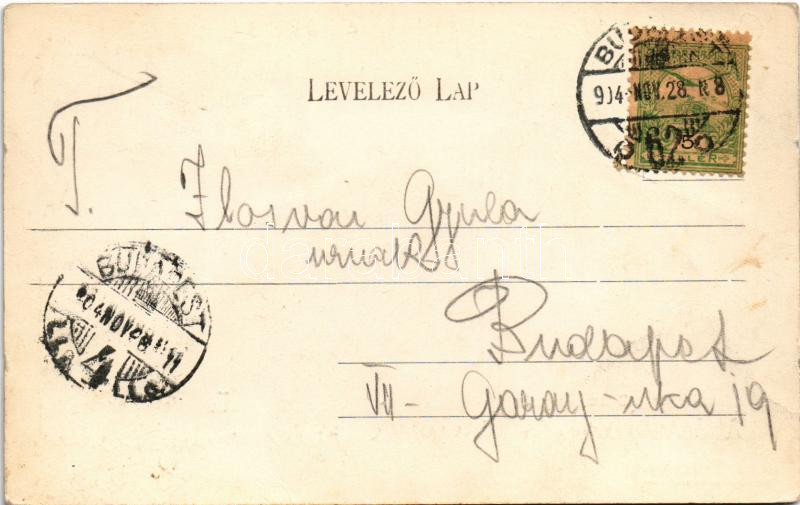 BUDAPEST
904 NOV. 28. N 8
62
LEVELEZŐ LAP
T.
Ilosvai Gyula
urnak
BUDAPEST
904 NOV 28 N 11
4
Budapest
VII - Garay-utca 19